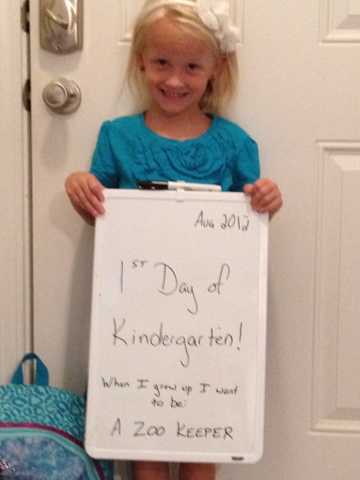 Aug 2012
1ST Day of
Kindergarten!
When I grow up I want
to be:
A ZOO KEEPER